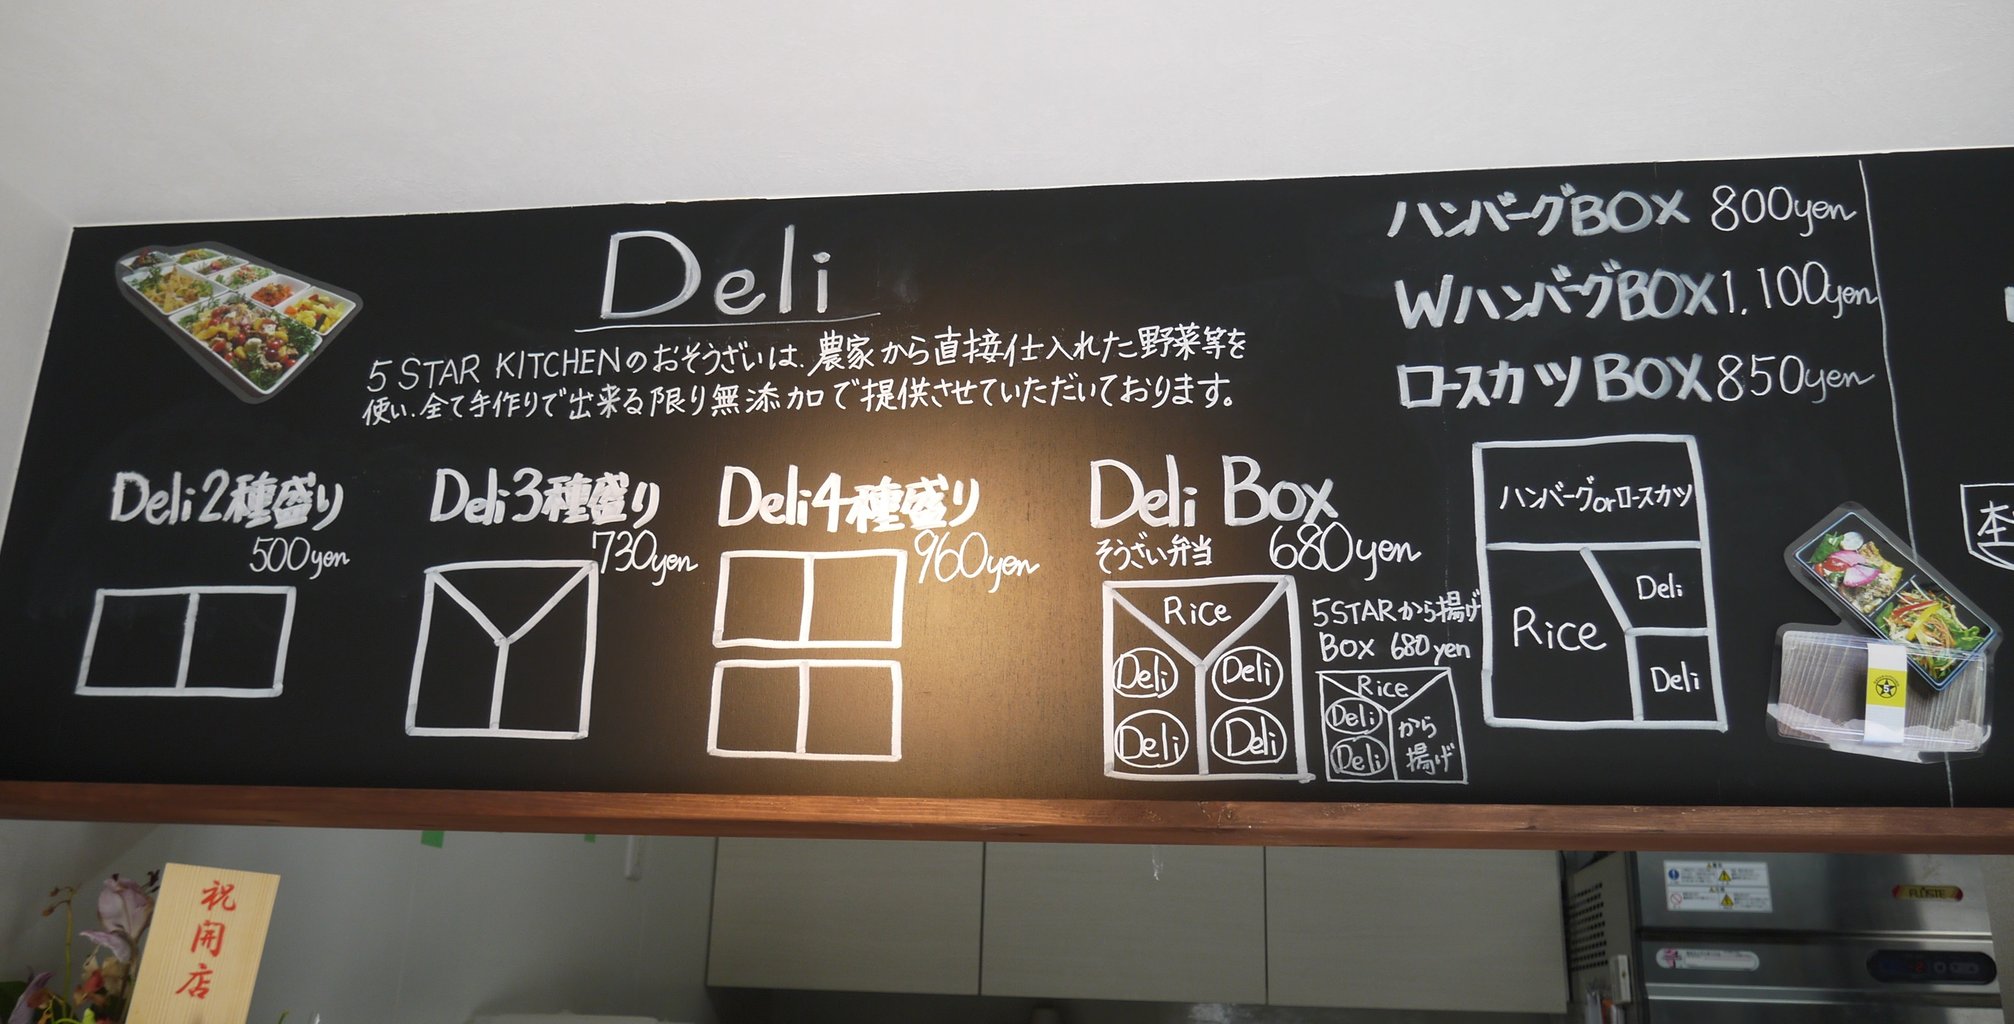 Deli
5 STAR KITCHENのおそうざいは、農家から直接仕入れた野菜等を
使い、全て手作りで出来る限り無添加で提供させていただいております。
Deli2種盛り
500yen
Deli3種盛り
730yen
Deli4種盛り
960yen
Deli Box
そうざい弁当 680yen
Rice
Deli Deli
Deli Deli
5STARから揚げ
BOX 680yen
Rice
Deli
Deli
から
揚げ
ハンバーグBOX 800yen
WハンバーグBOX 1,100yen
ロースカツBOX 850yen
ハンバーグorロースカツ
Rice
Deli
Deli
本
5
祝
開
店
FUJISTE